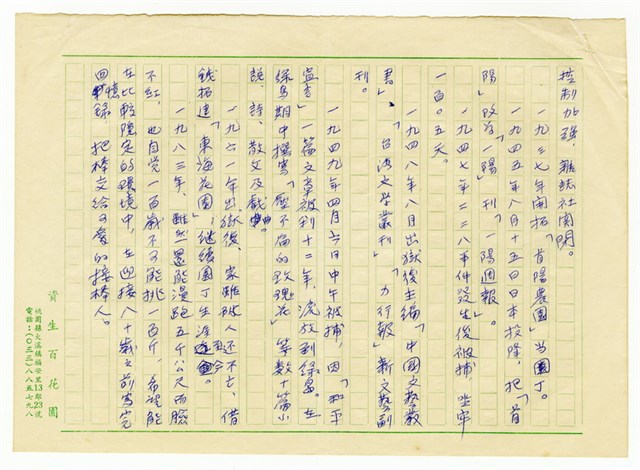 控制加強，雜誌社関閉。
一九三七年開拓「首陽農園」当園丁。
一九四五年八月十五日日本投降，把「首
陽」改為「一陽」，刊「一陽週報」。
一九四七年二二八事件發生後被捕，坐牢
一百〇五天。
一九四八年八月出獄後主編「中國文藝叢
書」、「台湾文学叢刊」、「力行報」新文藝副
刊。
一九四九年四月六日中午被捕，因「和平
宣言」一篇文章被判十二年，流放到綠島。在
綠島期中撰寫「壓不扁的玫瑰花」等数十篇小
説、詩、散文及戲曲。
一九六一年出獄後，家雖破人还不亡，借
錢拓建「東海花園」，継續園丁生涯迄今。
一九八三年，雖然還能漫跑五千公尺而臉
不紅，也自覚一百歳不可能挑一百斤，希望能
在比較隠定的環境中，在迎接八十歳之前寫完
回憶錄，把棒交給可愛的接棒人。
資生百花園
桃園縣大溪鎮福安里13鄰23號
電話：(〇三三)八八五七九八